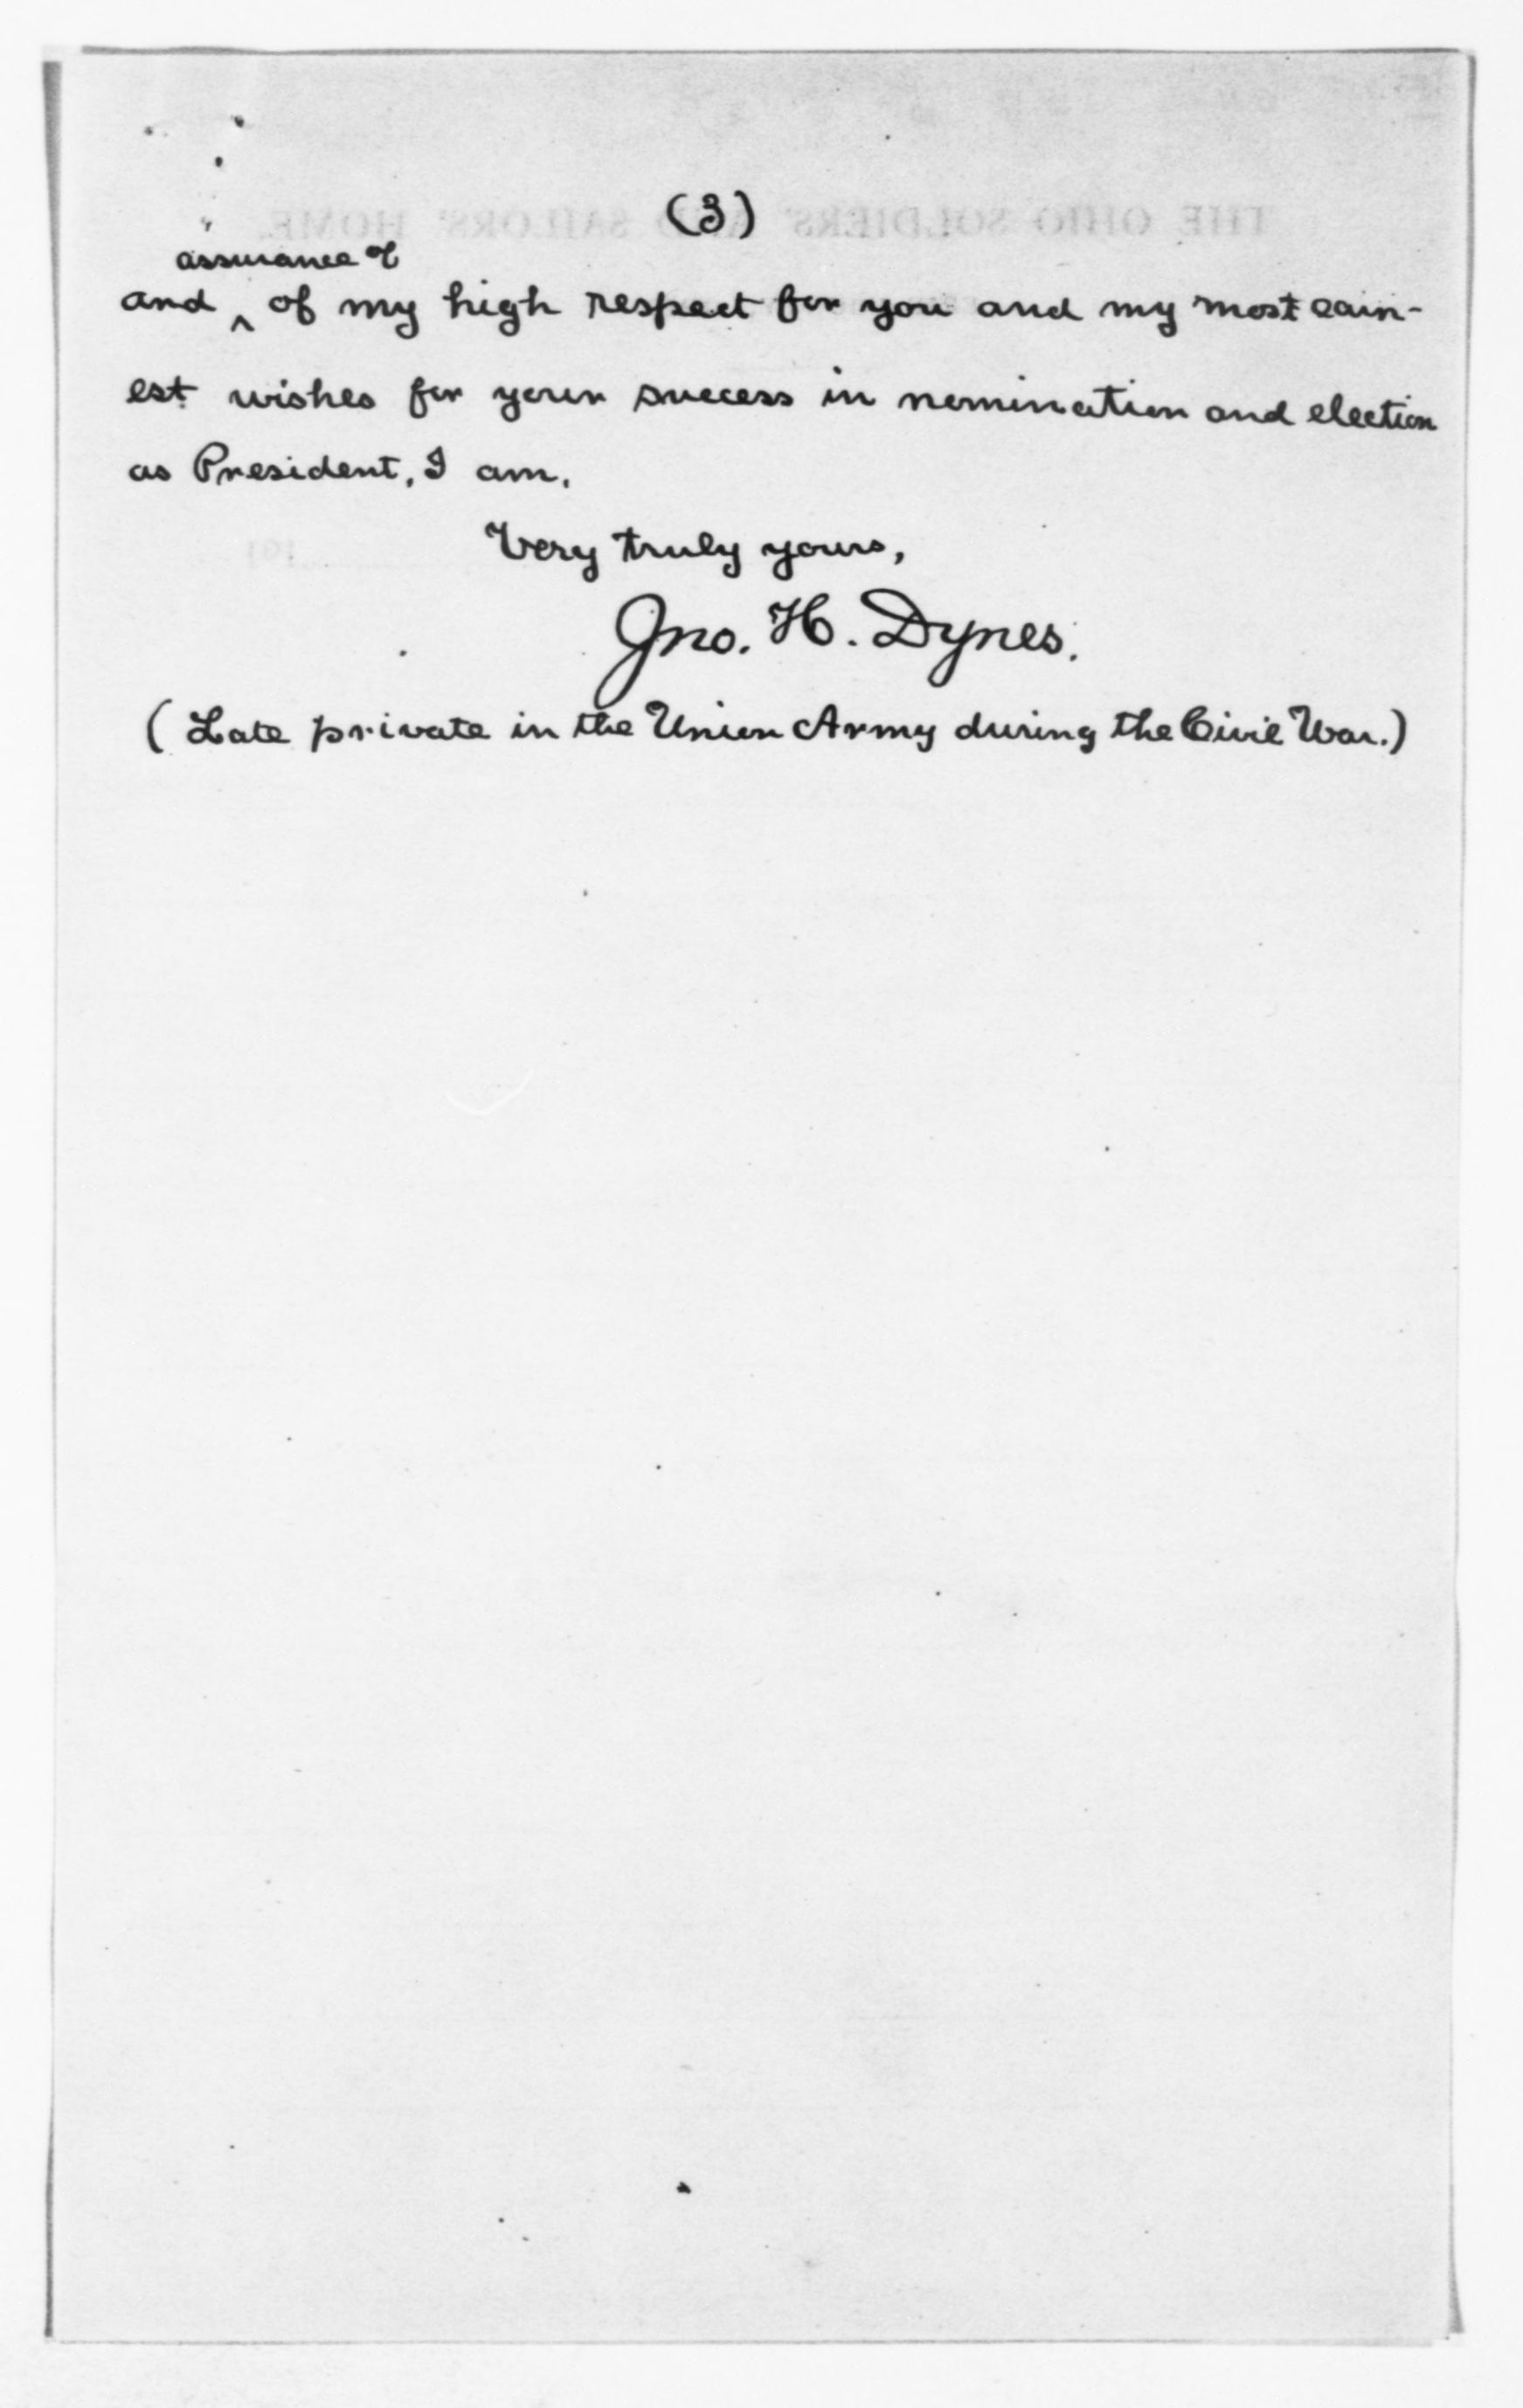 (3)
assurance of
and ^ of my high respect for you and my most earn-
est wishes for your success in nomination and election
as President, I am,
Very truly yours,
Jno. H. Dynes.
(Late private in the Union Army during the Civil War.)
THE OHIO SOLDIERS' AND SAILORS' HOME.
191